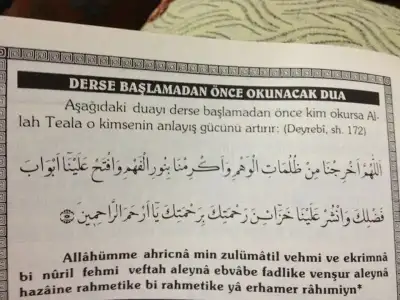 DERSE BAŞLAMADAN ÖNCE OKUNACAK DUA
Aşağıdaki duayı derse başlamadan önce kim okursa Al-
lah Teala o kimsenin anlayış gücünü artırır: (Deyrebî, sh. 172)
اَللّٰهُمَّ اَخْرِجْنَا مِنْ ظُلُمَاتِ الْوَهْمِ وَاَكْرِمْنَا بِنُورِ الْفَهْمِ وَافْتَحْ عَلَيْنَا اَبْوَابَ
فَضْلِكَ وَانْشُرْ عَلَيْنَا خَزَائِنَ رَحْمَتِكَ بِرَحْمَتِكَ يَا اَرْحَمَ الرَّاحِمِينَ
Allâhümme ahricnâ min zulümâtil vehmi ve ekrimnâ
bi nûril fehmi veftah aleynâ ebvâbe fadlike venşur aleynâ
hazâine rahmetike bi rahmetike yâ erhamer râhımiyn*